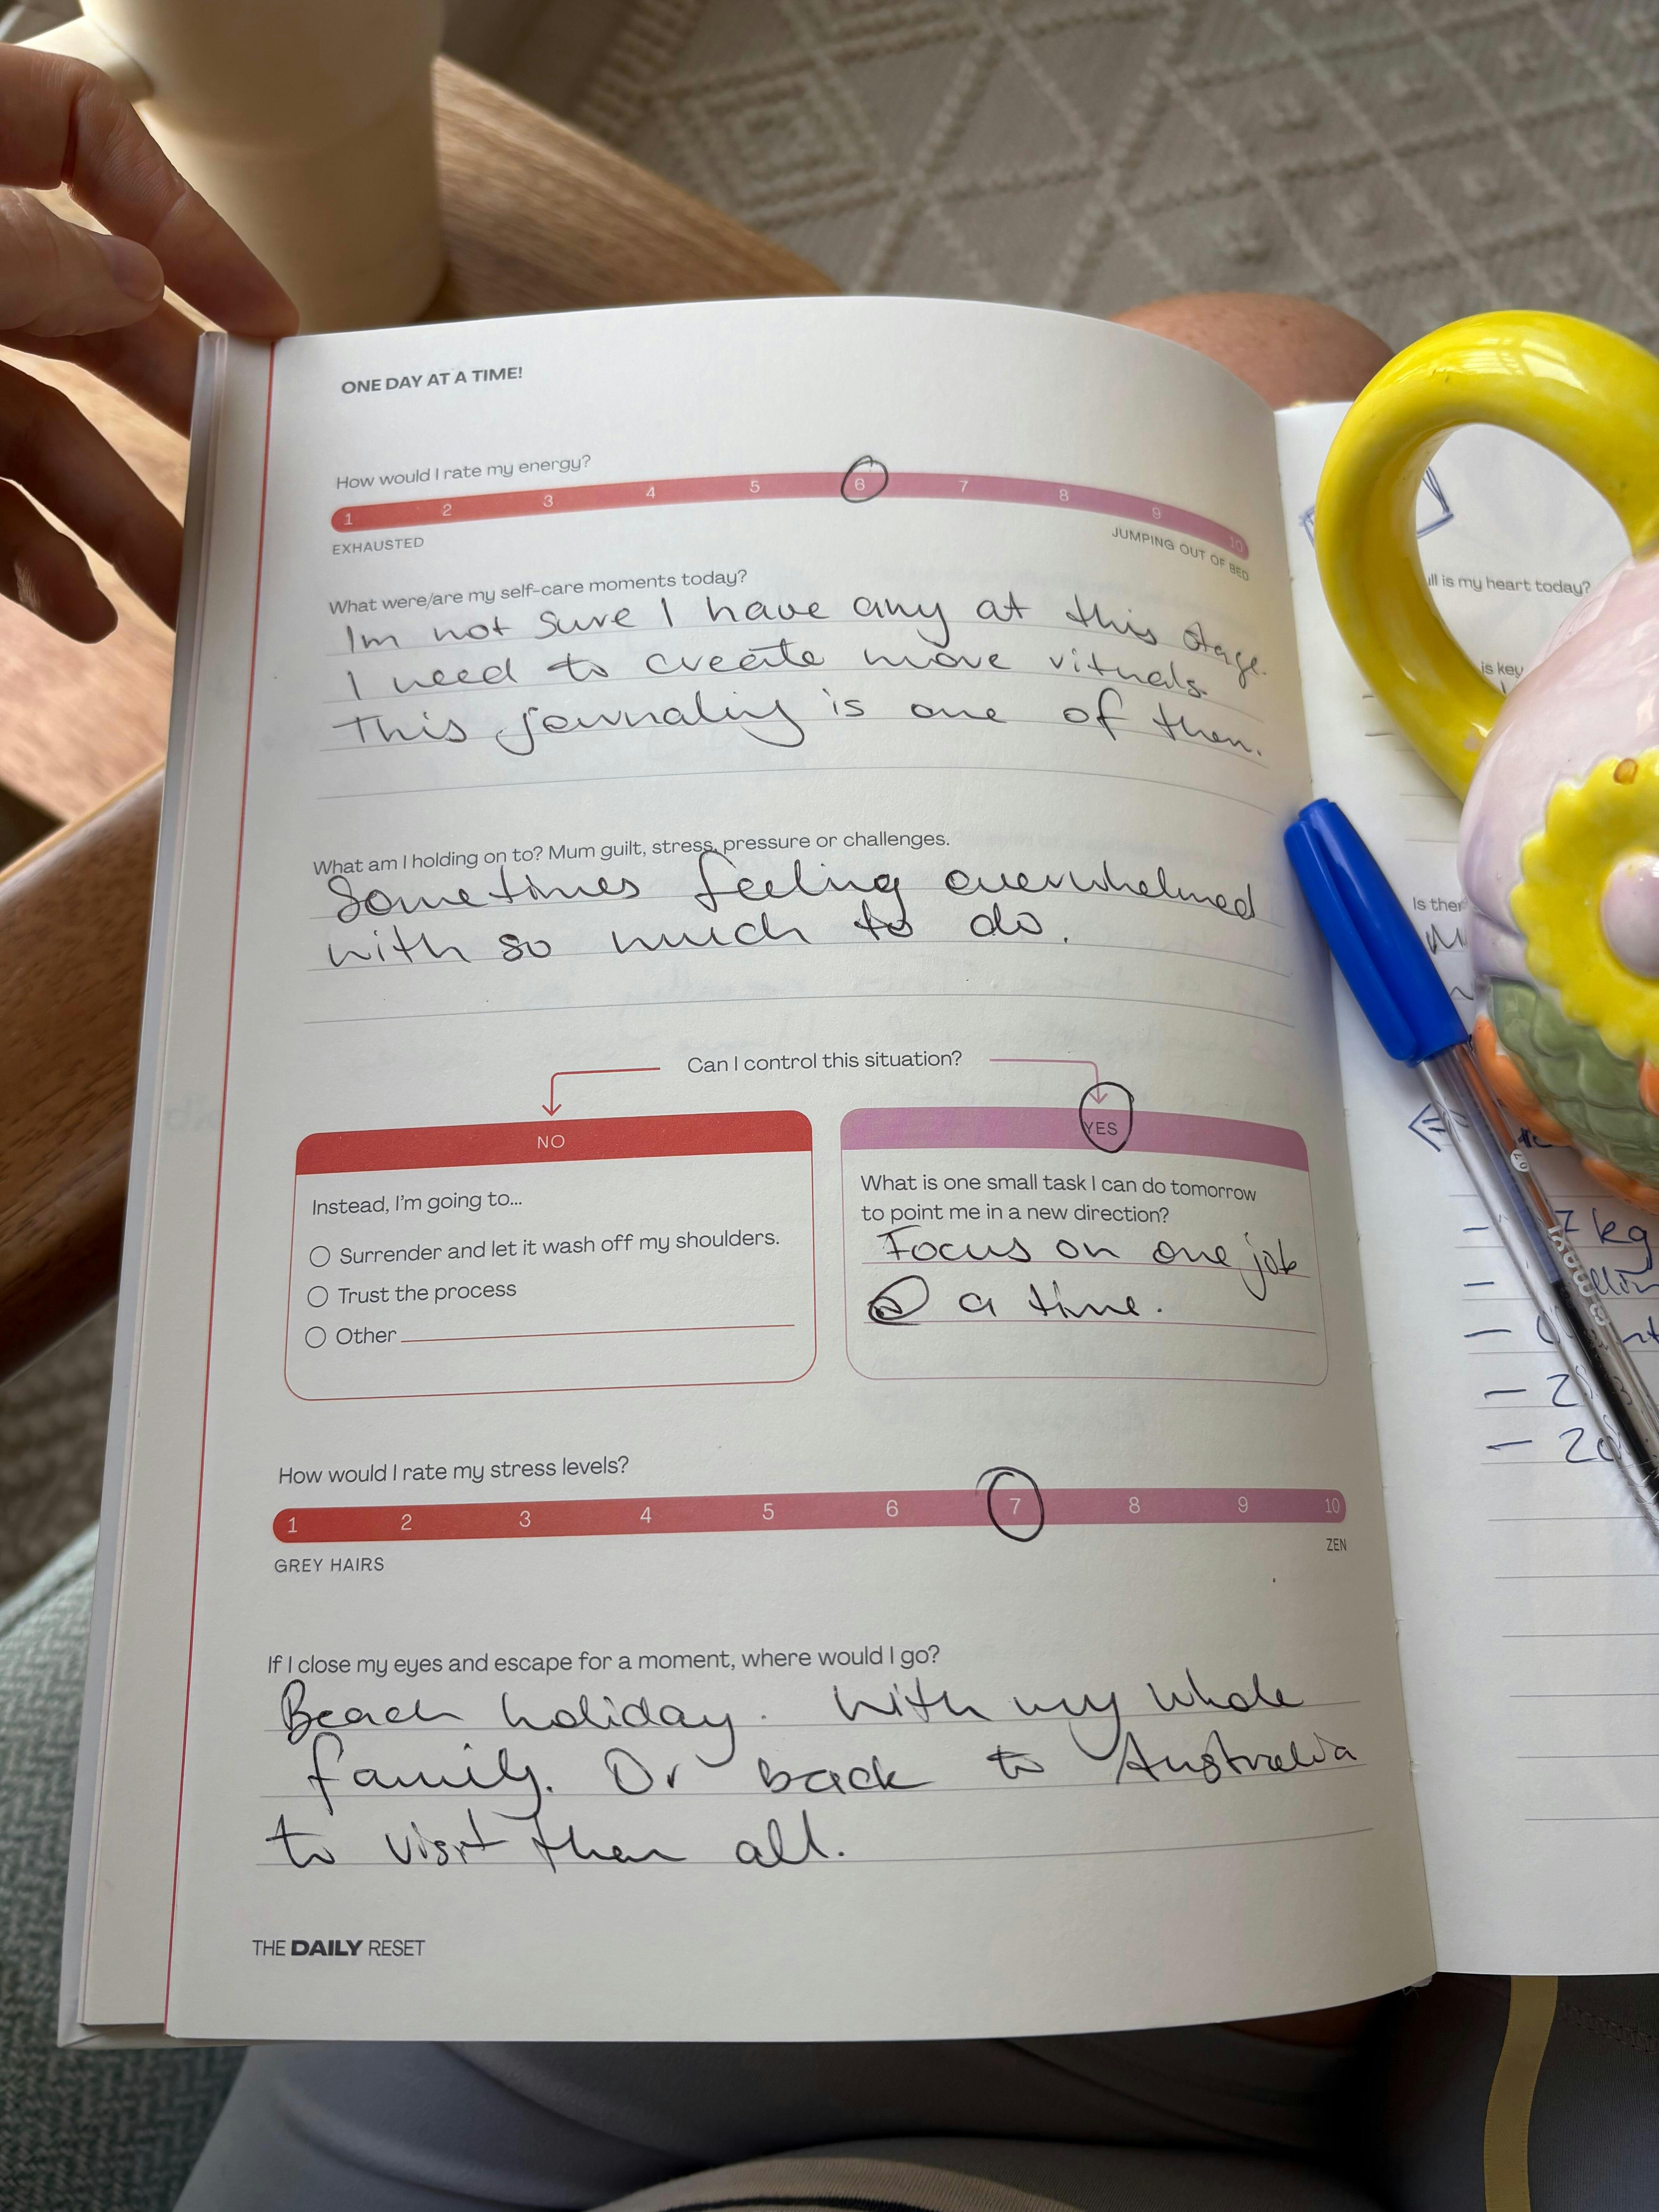 ONE DAY AT A TIME!
How would I rate my energy?
1 2 3 4 5 6 7 8 9 10
EXHAUSTED
JUMPING OUT OF BED
What were/are my self-care moments today?
Im not sure I have any at this stage.
I need to create more rituals.
This journaling is one of them.
What am I holding on to? Mum guilt, stress, pressure or challenges.
Sometimes feeling overwhelmed
with so much to do.
Can I control this situation?
NO
Instead, I'm going to...
Surrender and let it wash off my shoulders.
Trust the process
Other
YES
What is one small task I can do tomorrow
to point me in a new direction?
Focus on one job
@ a time.
How would I rate my stress levels?
1 2 3 4 5 6 7 8 9 10
GREY HAIRS
ZEN
If I close my eyes and escape for a moment, where would I go?
Beach holiday. With my whole
family. Or back to Australia
to visit them all.
THE DAILY RESET
is my heart today?
is key
Is ther
kg